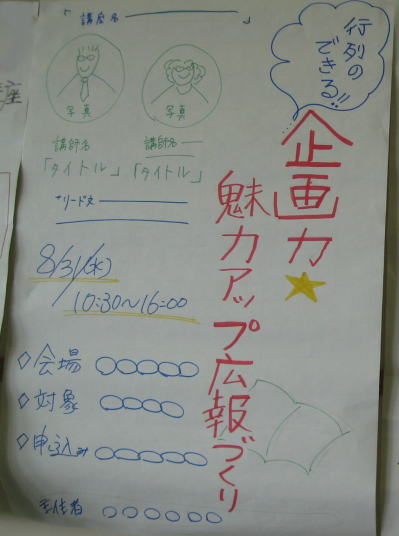 行列の
できる!!
企画力
魅力アップ広報づくり
「講座名
写真
写真
講師名
講師名
「タイトル」
「タイトル」
リード文
8/31(水)
10:30〜16:00
◇会場 ○○○○○
◇対象 ○○○○
◇申込み ○○○○○
○○○○○○
座